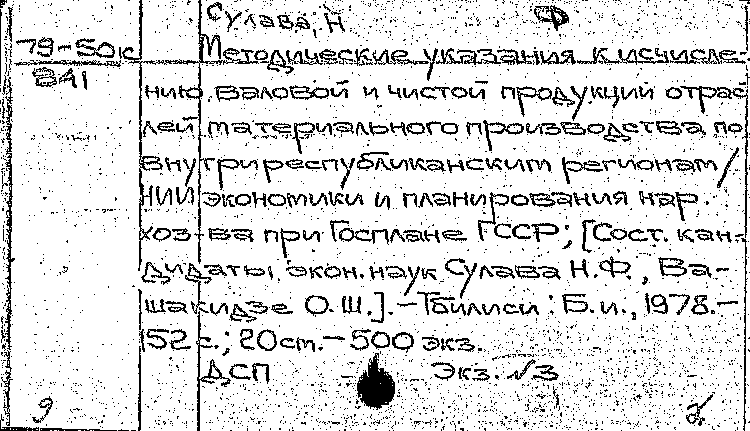 Сулава, Н
79-50к Методические указания к исчисле-
841
нию валовой и чистой продукций отрас
лей материального производства по
внутриреспубликанским регионам/
НИИ экономики и планирования нар.
хоз-ва при Госплане ГССР; [Сост. кан-
дидаты экон. наук Сулава Н.Ф., Ва-
шакидзе О.Ш.].-Тбилиси: Б.и., 1978.-
152 с.; 20см.-500 экз.
ДСП Экз. №3
9